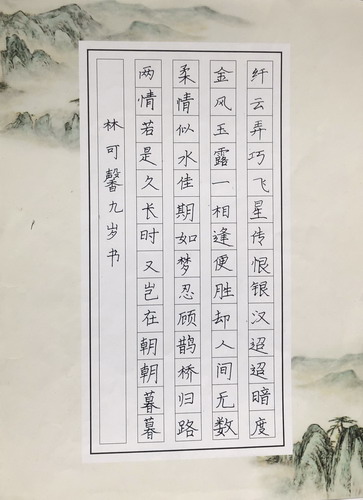 纤云弄巧飞星传恨银汉迢迢暗度
金风玉露一相逢便胜却人间无数
柔情似水佳期如梦忍顾鹊桥归路
两情若是久长时又岂在朝朝暮暮
林可馨九岁书